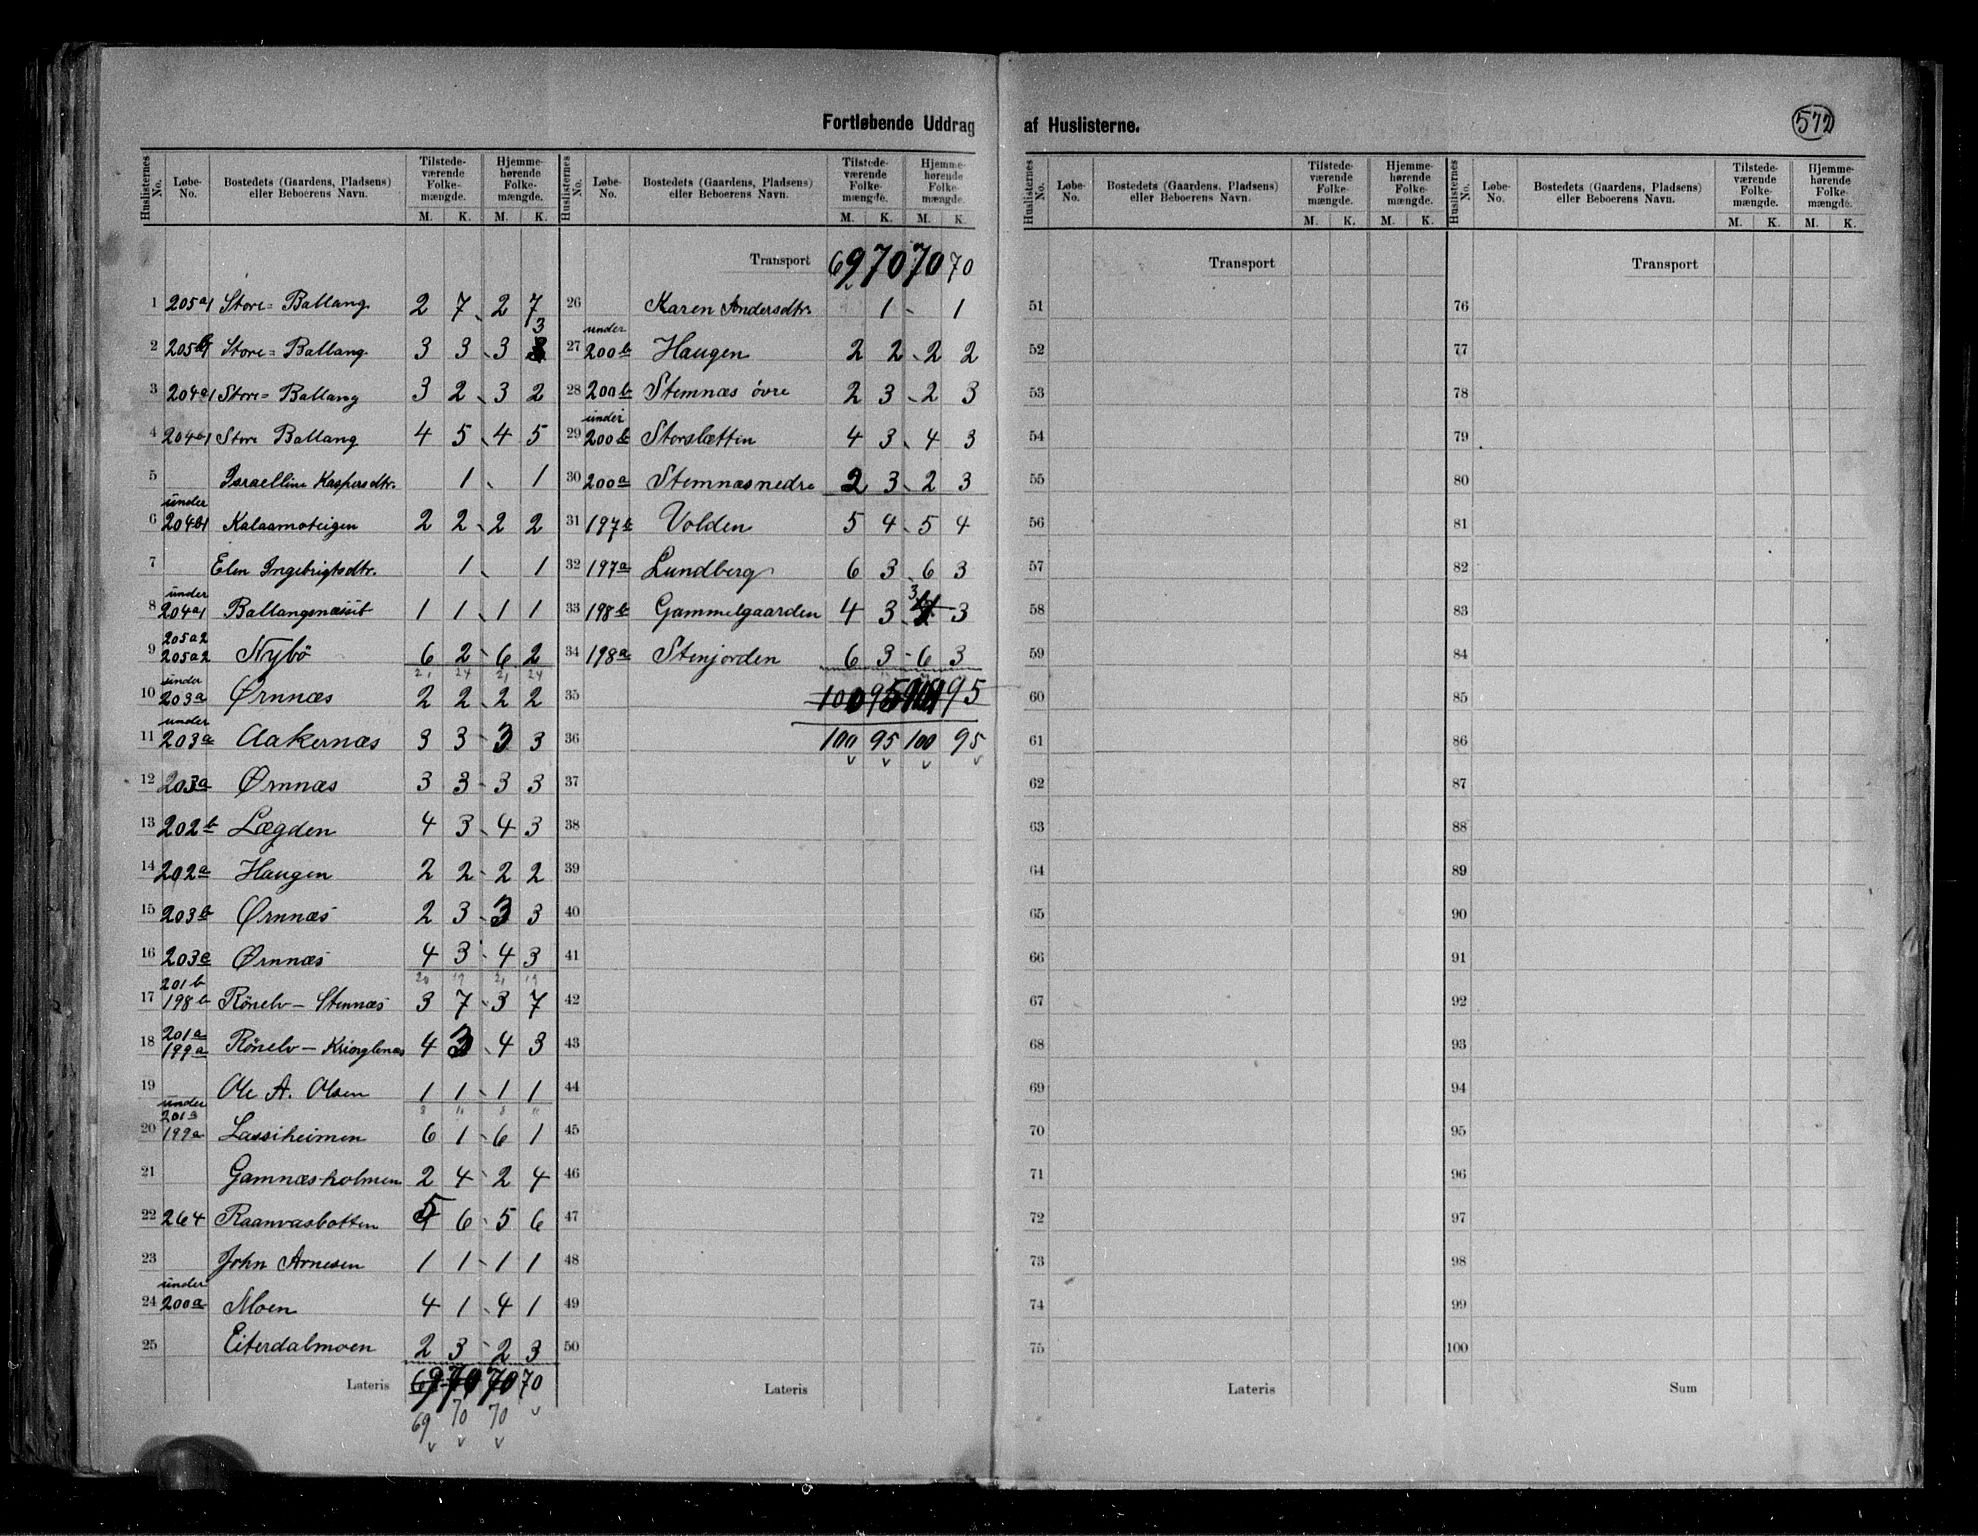 Fortløbende Uddrag af Huslisterne.
572
Huslisternes No. Løbe-No. Bostedets (Gaardens, Pladsens) eller Beboerens Navn. Tilstedeværende Folkemængde. M. K. Hjemmehørende Folkemængde. M. K.
1 205a1 Store= Ballang 2 7 2 7
2 205b1 Store= Ballang 3 3 3 3
3 204a1 Store= Ballang 3 2 3 2
4 204b1 Store Ballang 4 5 4 5
5 Israelline Kaspersdtr. 1 1
6 under 204b1 Kalaamoteigen 2 2 2 2
7 Elen Ingebrigtsdtr. 1 1
8 under 204a1 Ballangsnæsset 1 1 1 1
9 205a2 205a2 Nybö 6 2 6 2
21 24 21 24
10 under 203a Ørnnæs 2 2 2 2
11 under 203a Aakernæs 3 3 3 3
12 203a Ørnnæs 3 3 3 3
13 202b Lægden 4 3 4 3
14 202a Haugen 2 2 2 2
15 203b Ørnnæs 2 3 3 3
16 203a Ørnnæs 4 3 4 3
20 19 21 19
17 201b 198b Rönelv - Stemnæs 3 7 3 7
18 201a 199a Rönelv - 4 3 4 3
19 Ole A. Olsen 1 1 1 1
8 11 8 11
20 under 201a 199a Lassiheimen 6 1 6 1
21 Gamnæsholmen 2 4 2 4
22 264 Raanvasbotten 5 6 5 6
23 John Arnesen 1 1 1 1
24 under 200a Moen 4 1 4 1
25 Eiterdalmoen 2 3 2 3
Lateris 69 70 70 70
69 70 70
Huslisternes No. Løbe-No. Bostedets (Gaardens, Pladsens) eller Beboerens Navn. Tilstedeværende Folkemængde. M. K. Hjemmehørende Folkemængde. M. K.
Transport 69 70 70 70
26 Karen Andersdtr. 1 1
27 under 200b Haugen 2 2 2 2
28 200b Stemnæs övre 2 3 2 3
29 under 200b Storslætten 4 3 4 3
30 200a Stemnæs nedre 2 3 2 3
31 197b Volden 5 4 5 4
32 197a Lundberg 6 3 6 3
33 198b Gammelgaarden 4 3 4 3
34 198a Stenjorden 6 3 6 3
35 100 95 95
36 100 95 100 95
37
38
39
40
41
42
43
44
45
46
47
48
49
50
Lateris
Huslisternes No. Løbe-No. Bostedets (Gaardens, Pladsens) eller Beboerens Navn. Tilstedeværende Folkemængde. M. K. Hjemmehørende Folkemængde. M. K.
Transport
51
52
53
54
55
56
57
58
59
60
61
62
63
64
65
66
67
68
69
70
71
72
73
74
75
Lateris
Huslisternes No. Løbe-No. Bostedets (Gaardens, Pladsens) eller Beboerens Navn. Tilstedeværende Folkemængde. M. K. Hjemmehørende Folkemængde. M. K.
Transport
76
77
78
79
80
81
82
83
84
85
86
87
88
89
90
91
92
93
94
95
96
97
98
99
100
Sum